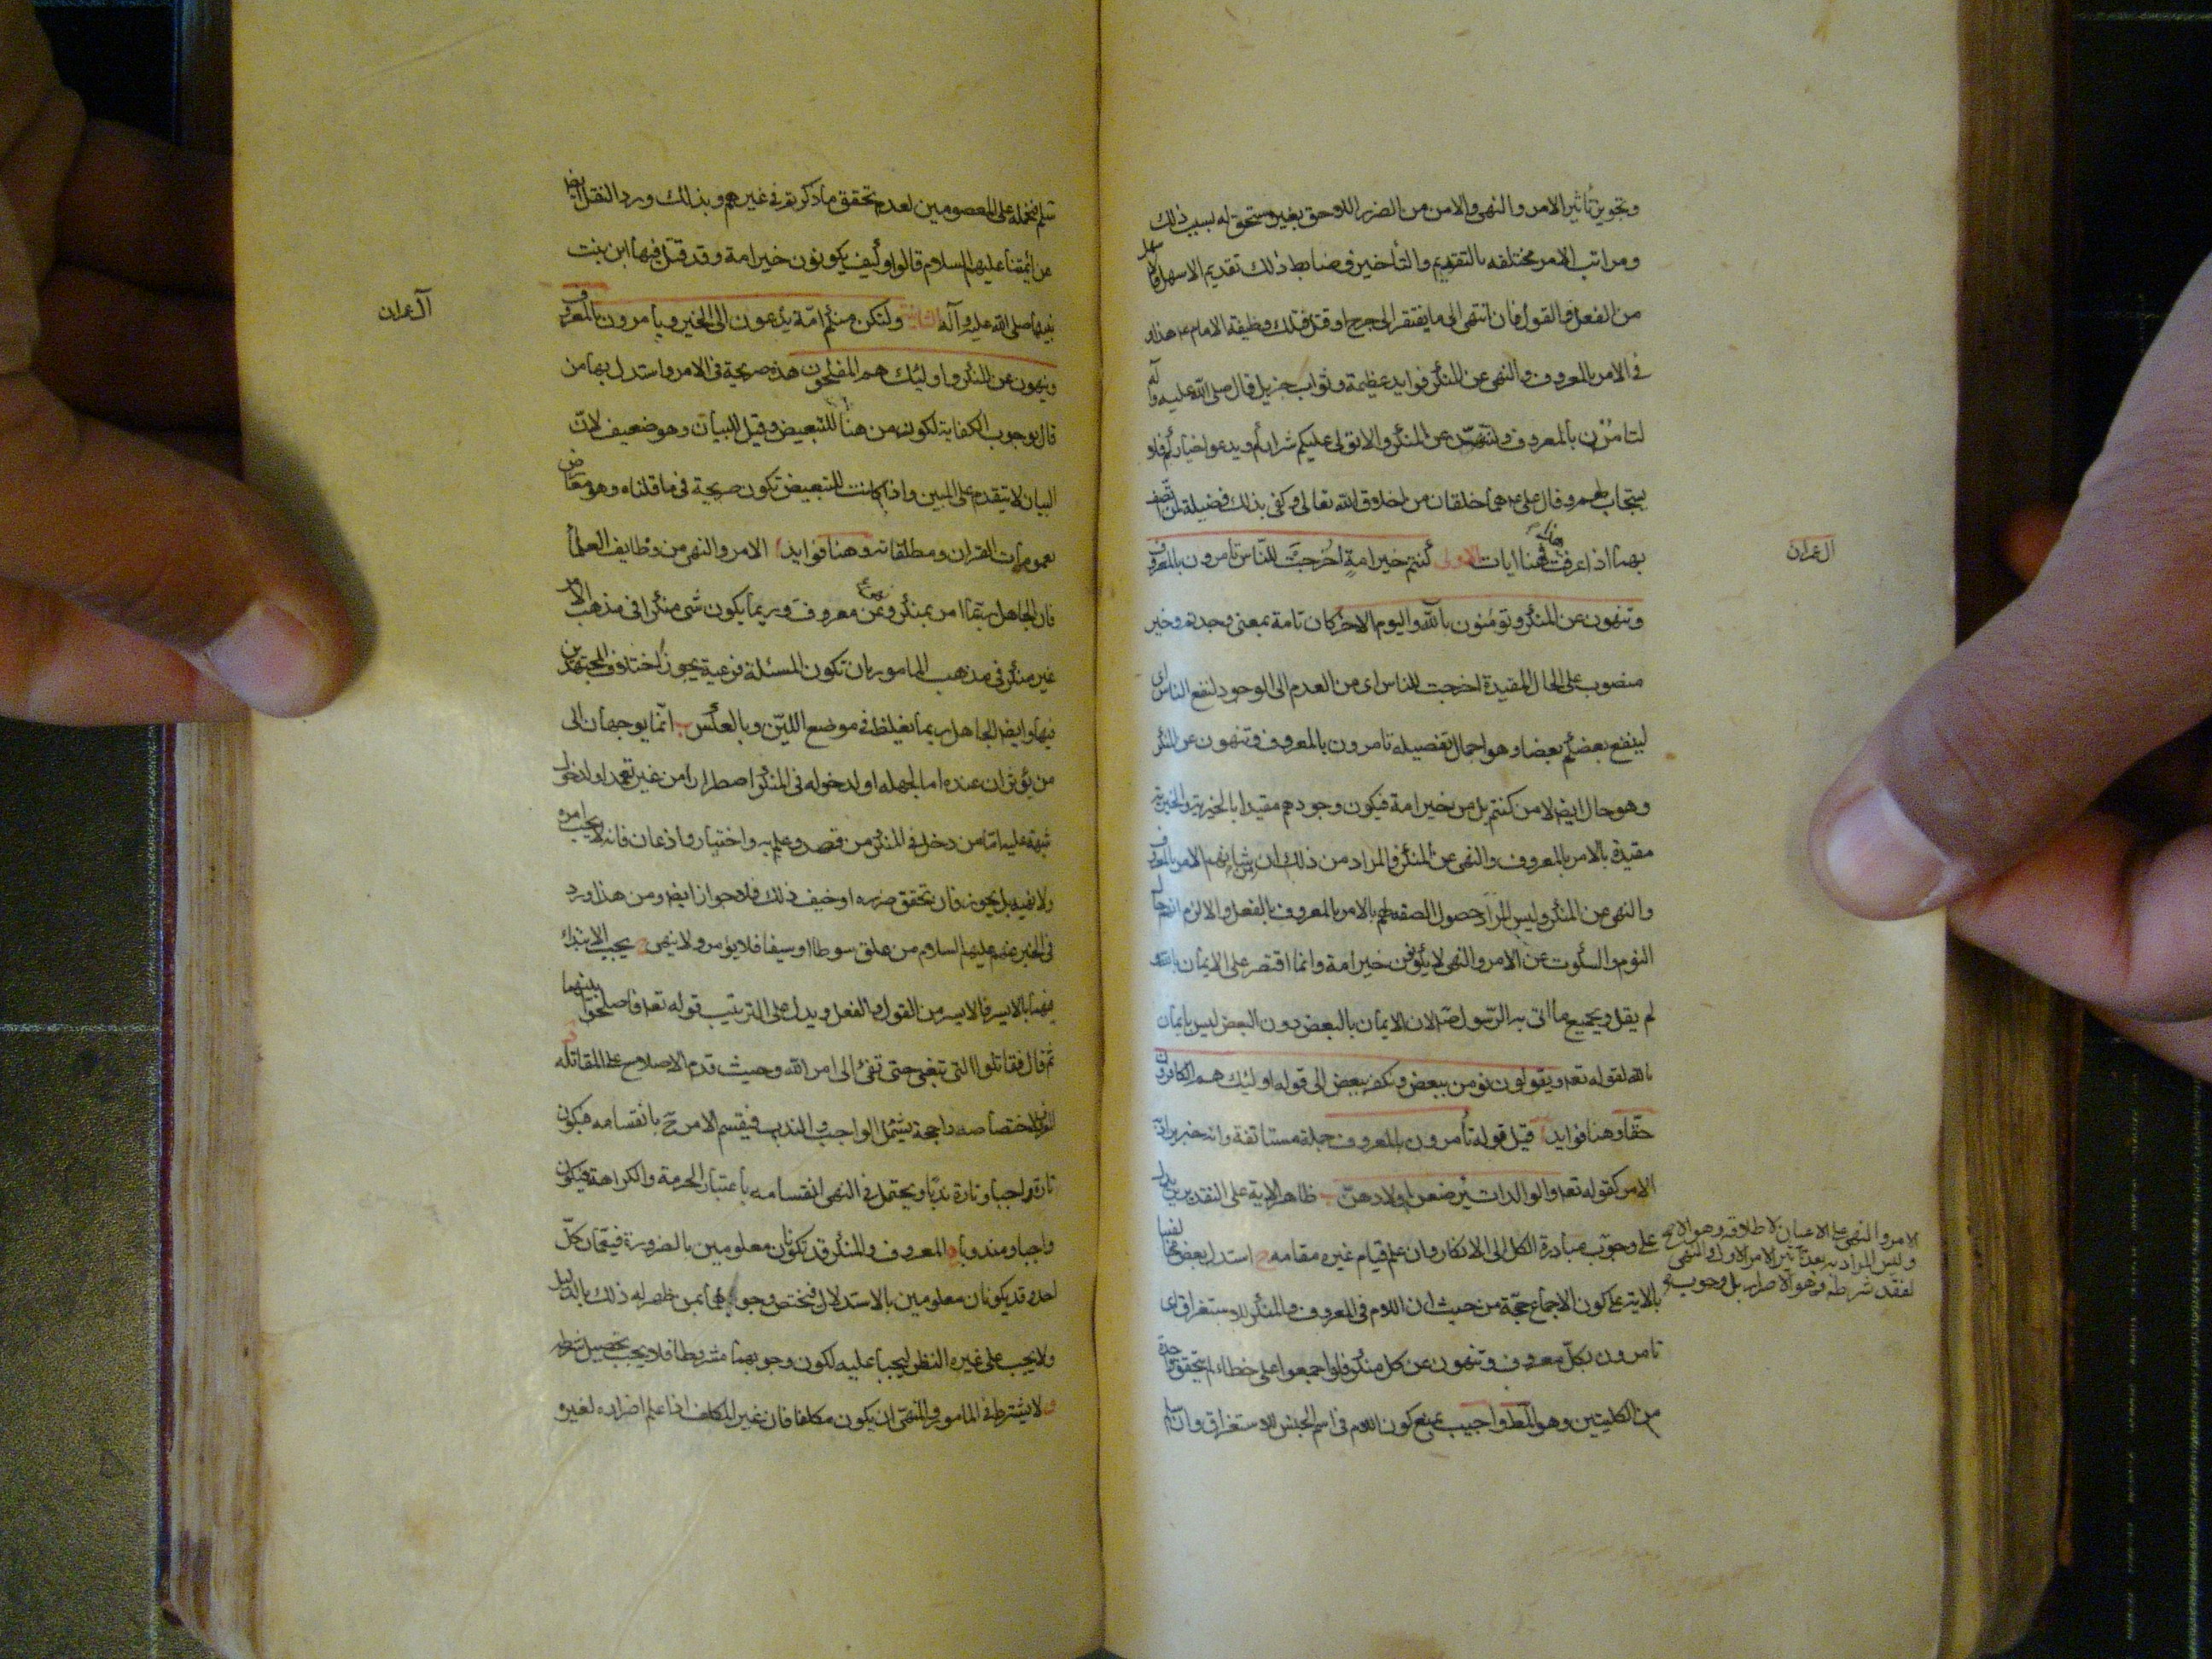 وتجويز تأثير الامر والنهى والامن من الضرر اللاحق بغير مستحق له بسبب ذلك
ومراتب الامر مختلفه بالتقديم والتأخير وضابط ذلك تقديم الاسهل فالاسهل
من الفعل والقول فان انتهى الى ما يفتقر الى جرح او قتل فتلك وظيفة الامام ع هذا و
فى الامر بالمعروف والنهى عن المنكر فوايد عظيمة وثواب جزيل قال صلى الله عليه وآله
لتامرن بالمعروف ولتنهن عن المنكر والا تولى عليكم شراركم ويدعوا خياركم فلا
يستجاب لهم وقال على ع هما خلقان من اخلاق الله تعالى وكفى بذلك فضيلة لمن اتصف
بهما اذا عرفت فهنا ايات الاولى كنتم خير امة اخرجت للناس تامرون بالمعروف
آل عمران
وتنهون عن المنكر وتؤمنون بالله واليوم الاخر كان تامة بمعنى وجدتم وخير
منصوب على الحال المقيدة اخرجت للناس اى من العدم الى الوجود لنفع الناس اى
لينفع بعضكم بعضا وهو اجمال تفصيله تامرون بالمعروف وتنهون عن المنكر
وهو حال ايض لا من كنتم بل من خير امة فيكون وجودهم مقيدا بالخيرية والخيرية
مقيدة بالامر بالمعروف والنهى عن المنكر والمراد من ذلك ان من شانهم الامر بالمعروف
والنهى عن المنكر وليس المراد حصول الصفه لهم بالامر بالمعروف بالفعل والا لزم انهم حال
النوم والسكوت عن الامر والنهى لا يكونون خير امة وانما اقتصر على الايمان بالله و
لم يقل وبجميع ما اتى به الرسول ص لان الايمان بالبعض دون البعض ليس بايمان
بالله لقوله تعه ويقولون نومن ببعض ونكفر ببعض الى قوله اولئك هم الكافرون
حقا وهنا فوايد ا قيل قوله تأمرون بالمعروف جملة مستانفة وانه خبر يراد به
الامر كقوله تعه والوالدات يرضعن اولادهن ب ظاهر الاية على التقديرين يدل
على وجوب مبادرة الكل الى الانكار وان علم قيام غيره مقامه ج استدل بعض مخالفينا
الامر والنهى على الاعيان لاطلاقه وهو الاصح
وليس المراد به بعد تأثير الامر الاول والنهى
لفقد شرطه وهو الاصرار بل وجوب
بالاية على كون الاجماع حجة من حيث ان اللام فى المعروف والمنكر للاستغراق اى
تامرون بكل معروف وتنهون عن كل منكر فلو اجمعوا على خطاء لم يتحقق واحدة
من الكليتين وهو المط واجيب بمنع كون اللام فى اسم الجنس للاستغراق وان سلم
سلم فنحمله على المعصومين لعدم تحقق ما ذكرتم فى غيرهم وبذلك ورد النقل ايض
عن ائمتنا عليهم السلام قالوا وكيف يكونون خير امة وقد قتل فيها ابن بنت
نبيها صلى الله عليه وآله الثانية ولتكن منكم امة يدعون الى الخير ويأمرون بالمعروف
آل عمران
وينهون عن المنكر واولئك هم المفلحون هذه صريحة فى الامر واستدل بها من
قال بوجوب الكفاية لكون من هنا للتبعيض وقيل للبيان وهو ضعيف لان
البيان لا يتقدم على المبين واذا كانت للتبعيض تكون صريحة فى ما قلناه وهو معارض
بعمومات القران ومطلقاته وهنا فوايد ا الامر والنهى من وظايف العلما
فان الجاهل ربما امر بمنكر ونهى عن معروف وربما يكون شى منكرا فى مذهب الامر
غير منكر فى مذهب المامور بان تكون المسئلة فرعية يجوز اختلاف المجتهدين
فيها وايض الجاهل ربما يغلظ فى موضع اللين وبالعكس ب انما يوجهان الى
من يؤثران عنده اما لجهله او لدخوله فى المنكر اضطرارا من غير تعمد او لدخول
شبهة عليه اما من دخل فى المنكر من قصد وعلم به واختيار واذعان فانه لا يجب امره
ولا نهيه بل يجوز فان تحقق ضرره او خيف ذلك فلا جواز ايض ومن هذا ورد
فى الخبر عنهم عليهم السلام من علق سوطا او سيفا فلا يؤمر ولا ينهى ج يجب الابتداء
فيهما بالايسر فالايسر من القول والفعل ويدل على الترتيب قوله تعه فاصلحوا بينهما
ثم قال فقاتلوا التى تبغى حتى تفئ الى امر الله وحيث قدم الاصلاح على المقاتله
المعروف لاختصاصه براجحة يشمل الواجب والندب فينقسم الامر ح بانقسامه فيكون
تارة واجبا وتارة ندبا ويحتمل فى النهى انقسامه باعتبار الحرمة والكراهة فيكون
واجبا ومندوبا ه المعروف والمنكر قد تكونان معلومين بالضرورة فيعمان كل
احد وقد يكونان معلومين بالاستدلال فيختص وجوبهما بمن ظهر له ذلك بالدليل
ولا يجب على غيره النظر ليجبا عليه لكون وجوبهما مشروطا فلا يجب تحصيل شرطه
و لا يشترط فى المامور والمنهى ان يكون مكلفا فان غير المكلف اذا علم اضراره لغيره